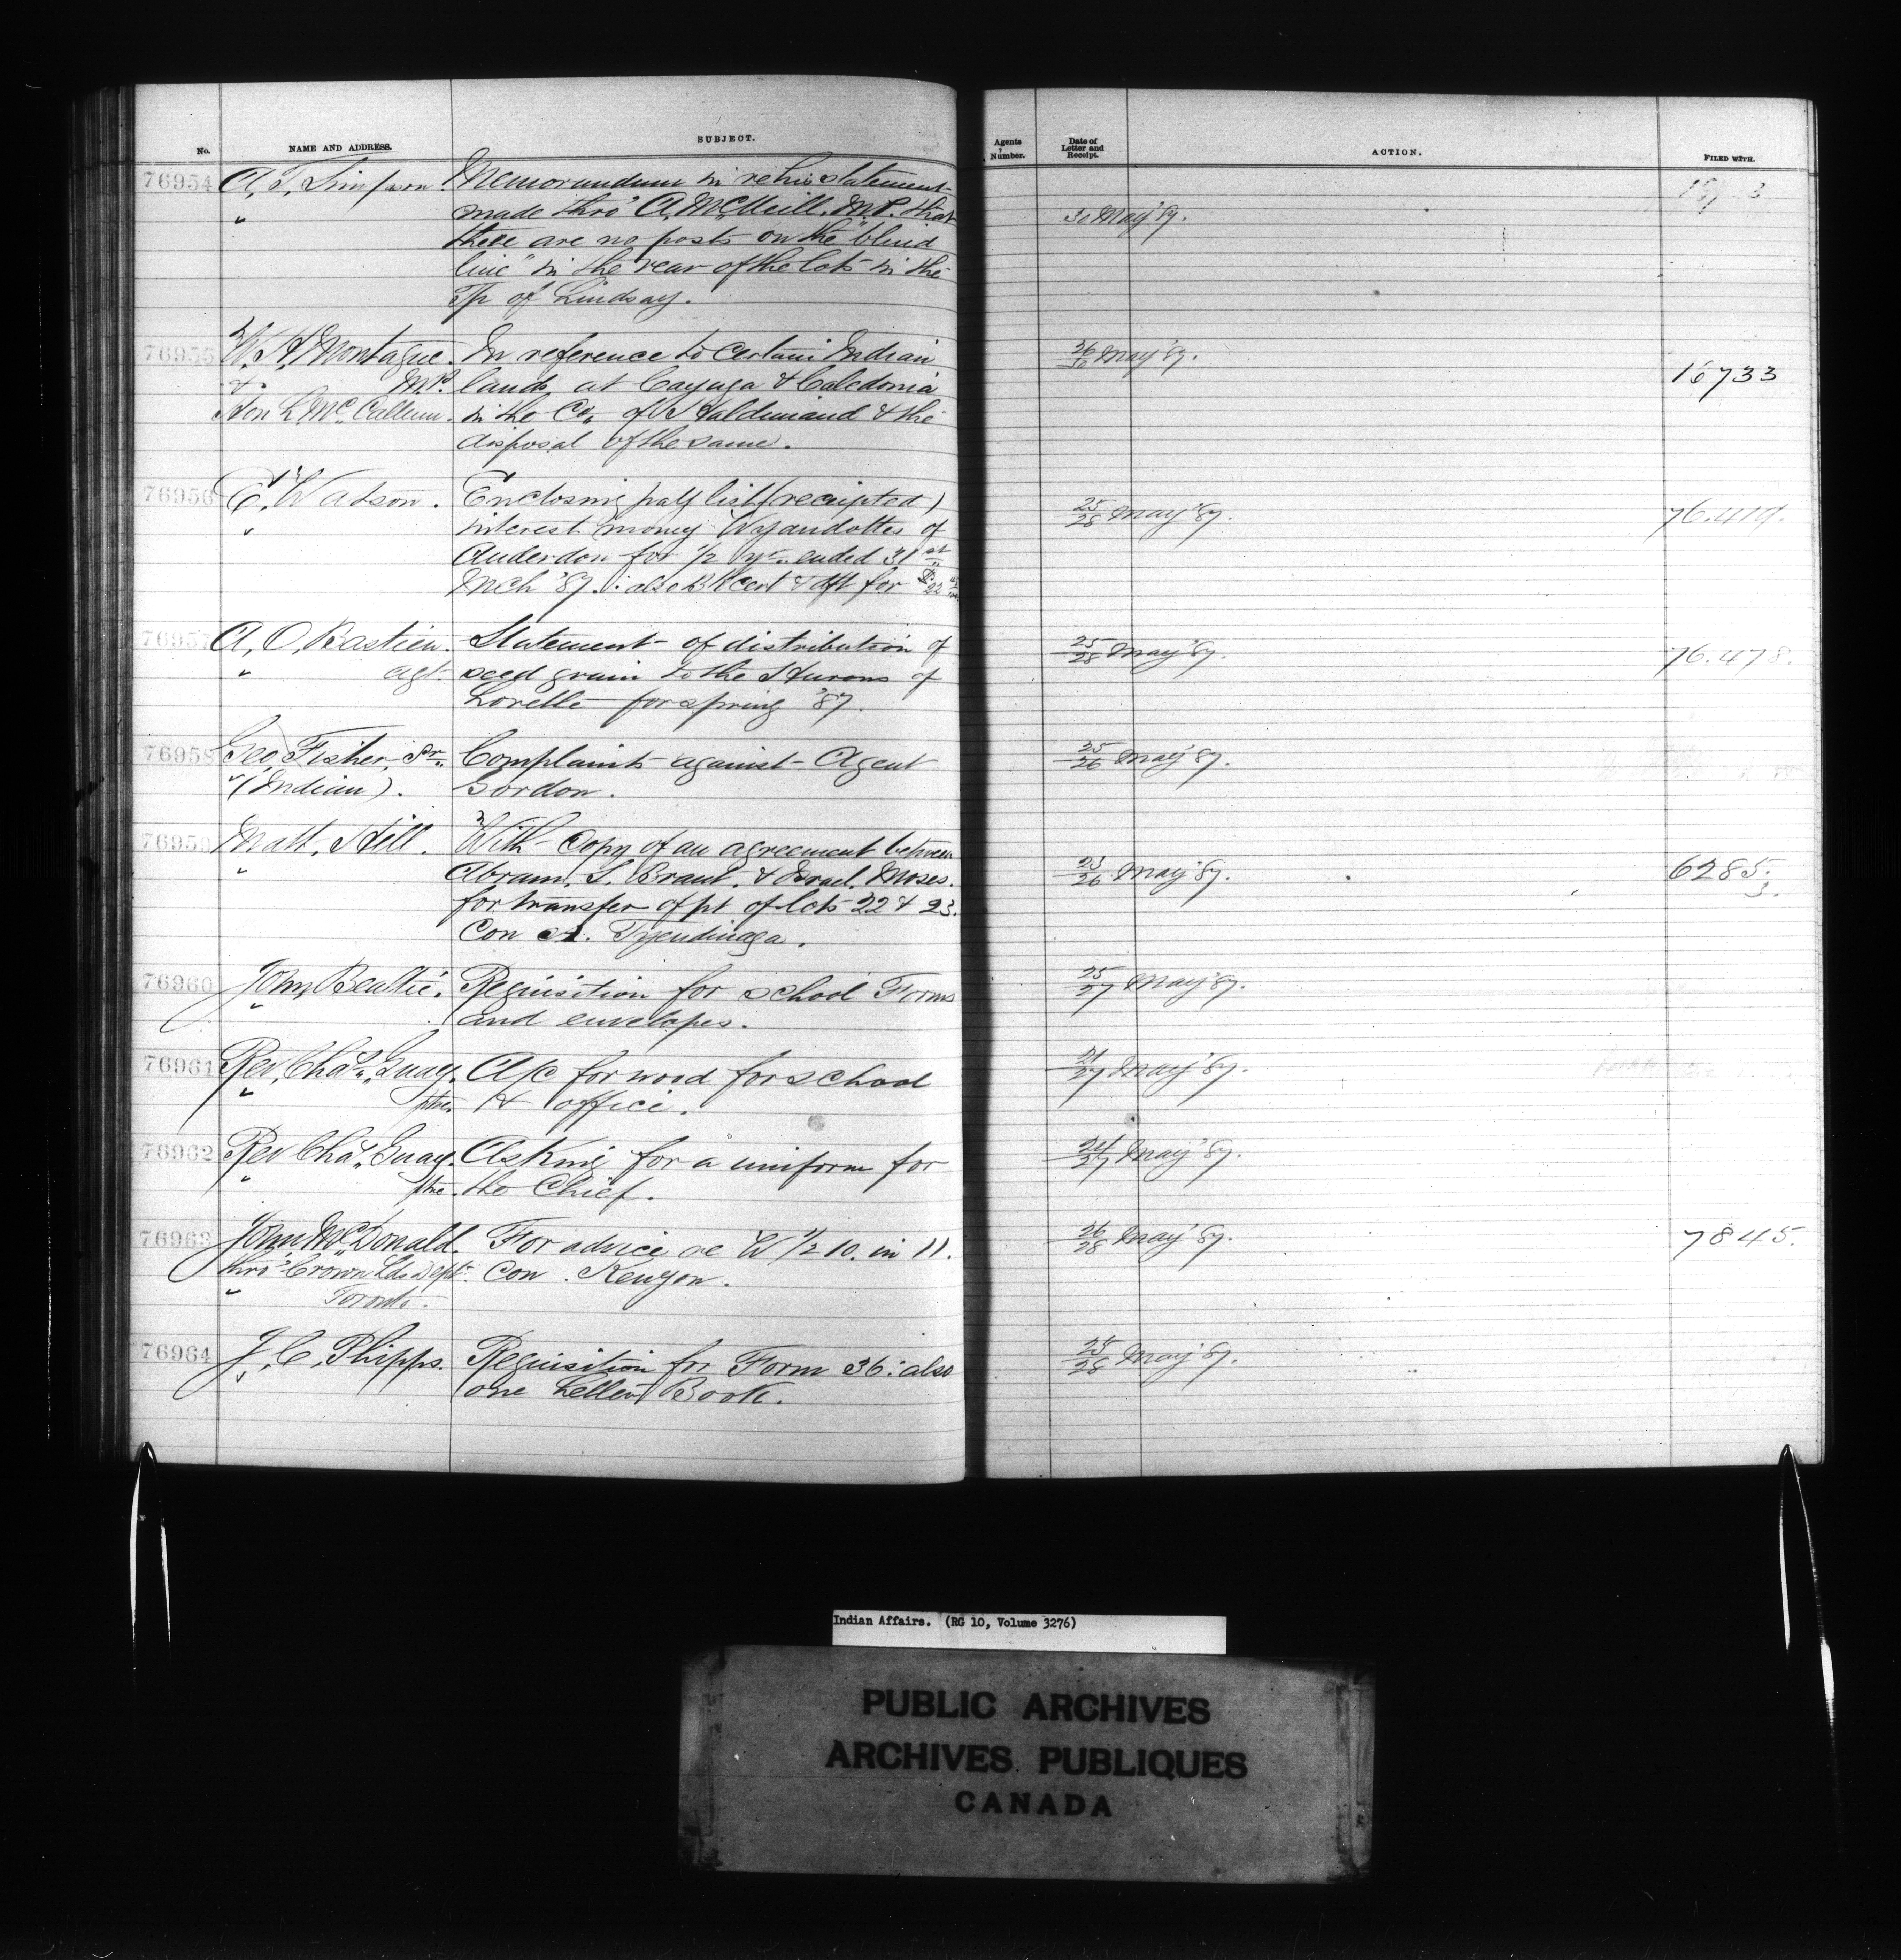 No. NAME AND ADDRESS. SUBJECT. Agents Number. Date of Letter and Receipt. ACTION. FILED WITH.
76954 A. T. Simpson. Memorandum in re his statement
" made thro' A. McNeill. M.P. that 30 May '87.
there are no posts on the "blind
line" in the rear of the lots in the
Tp of Lindsay.
76955 W. H. Montague. In reference to certain Indian 26/30 May '87.
& M.P. lands at Cayuga & Caledonia 16733
Hon L. McCallum. in the Co. of Haldimand & the
disposal of the same.
76956 E. Watson. Enclosing pay list (receipted) 25/28 May '87. 76.419.
" interest money Wyandottes of
Anderdon for 1/2 yr. ended 31st
Mch '87. : also BK cert & dft for $22
76957 A. O. Bastien. Statement of distribution of 25/28 May '87. 76.478.
" agt. seed grain to the Hurons of
Lorette for spring '87.
76958 Geo. Fisher, Sr. Complaints against Agent 25/26 May '87.
" (Indian). Gordon.
76959 Matt. Hill. With copy of an agreement between
" Abram. S. Brant. & Israel. Moses. 23/26 May '87. 6285.
for transfer of pt of lots 22 & 23. 3.
Con A. Tyendinaga.
76960 John Beattie. Requisition for school Forms 25/27 May '87.
" and envelopes.
76961 Rev. Chas. Guay. A/c for wood for school 21/27 May '87.
" ptre. & office.
76962 Rev Chas. Guay. Asking for a uniform for 24/27 May '87.
" ptre. the Chief.
76963 John McDonald. For advice re W 1/2 10. in 11. 26/28 May '87. 7845.
thro' Crown Lds Dept. Con. Kenyon.
" Toronto.
76964 J. C. Phipps. Requisition for Form 36: also 25/28 May '87.
" one Letter Book.
Indian Affairs. (RG 10, Volume 3276)
PUBLIC ARCHIVES
ARCHIVES PUBLIQUES
CANADA